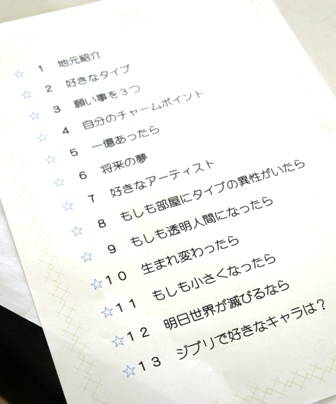 ☆ 1 地元紹介
☆ 2 好きなタイプ
☆ 3 願い事を3つ
☆ 4 自分のチャームポイント
☆ 5 一億あったら
☆ 6 将来の夢
☆ 7 好きなアーティスト
☆ 8 もしも部屋にタイプの異性がいたら
☆ 9 もしも透明人間になったら
☆10 生まれ変わったら
☆11 もしも小さくなったら
☆12 明日世界が滅びるなら
☆13 ジブリで好きなキャラは?